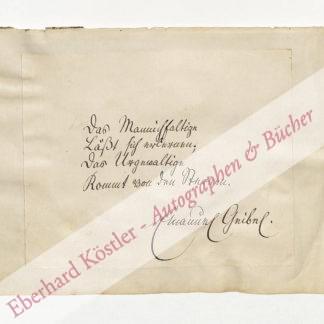 Das Mannichfaltige
Läßt sich erlernen,
Das Urgewaltige
Kommt von den Sternen.
Emanuel Geibel.
Eberhard Köstler - Autographen & Bücher